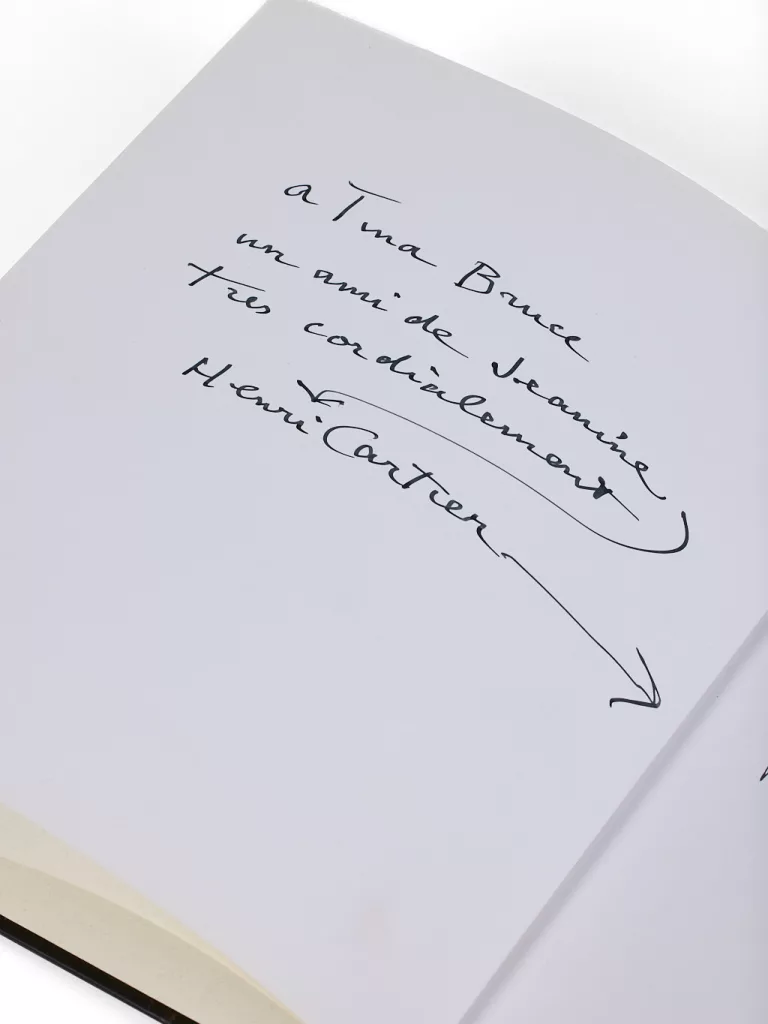 a Tina Bruce
un ami de Jeanine
très cordialement
Henri Cartier